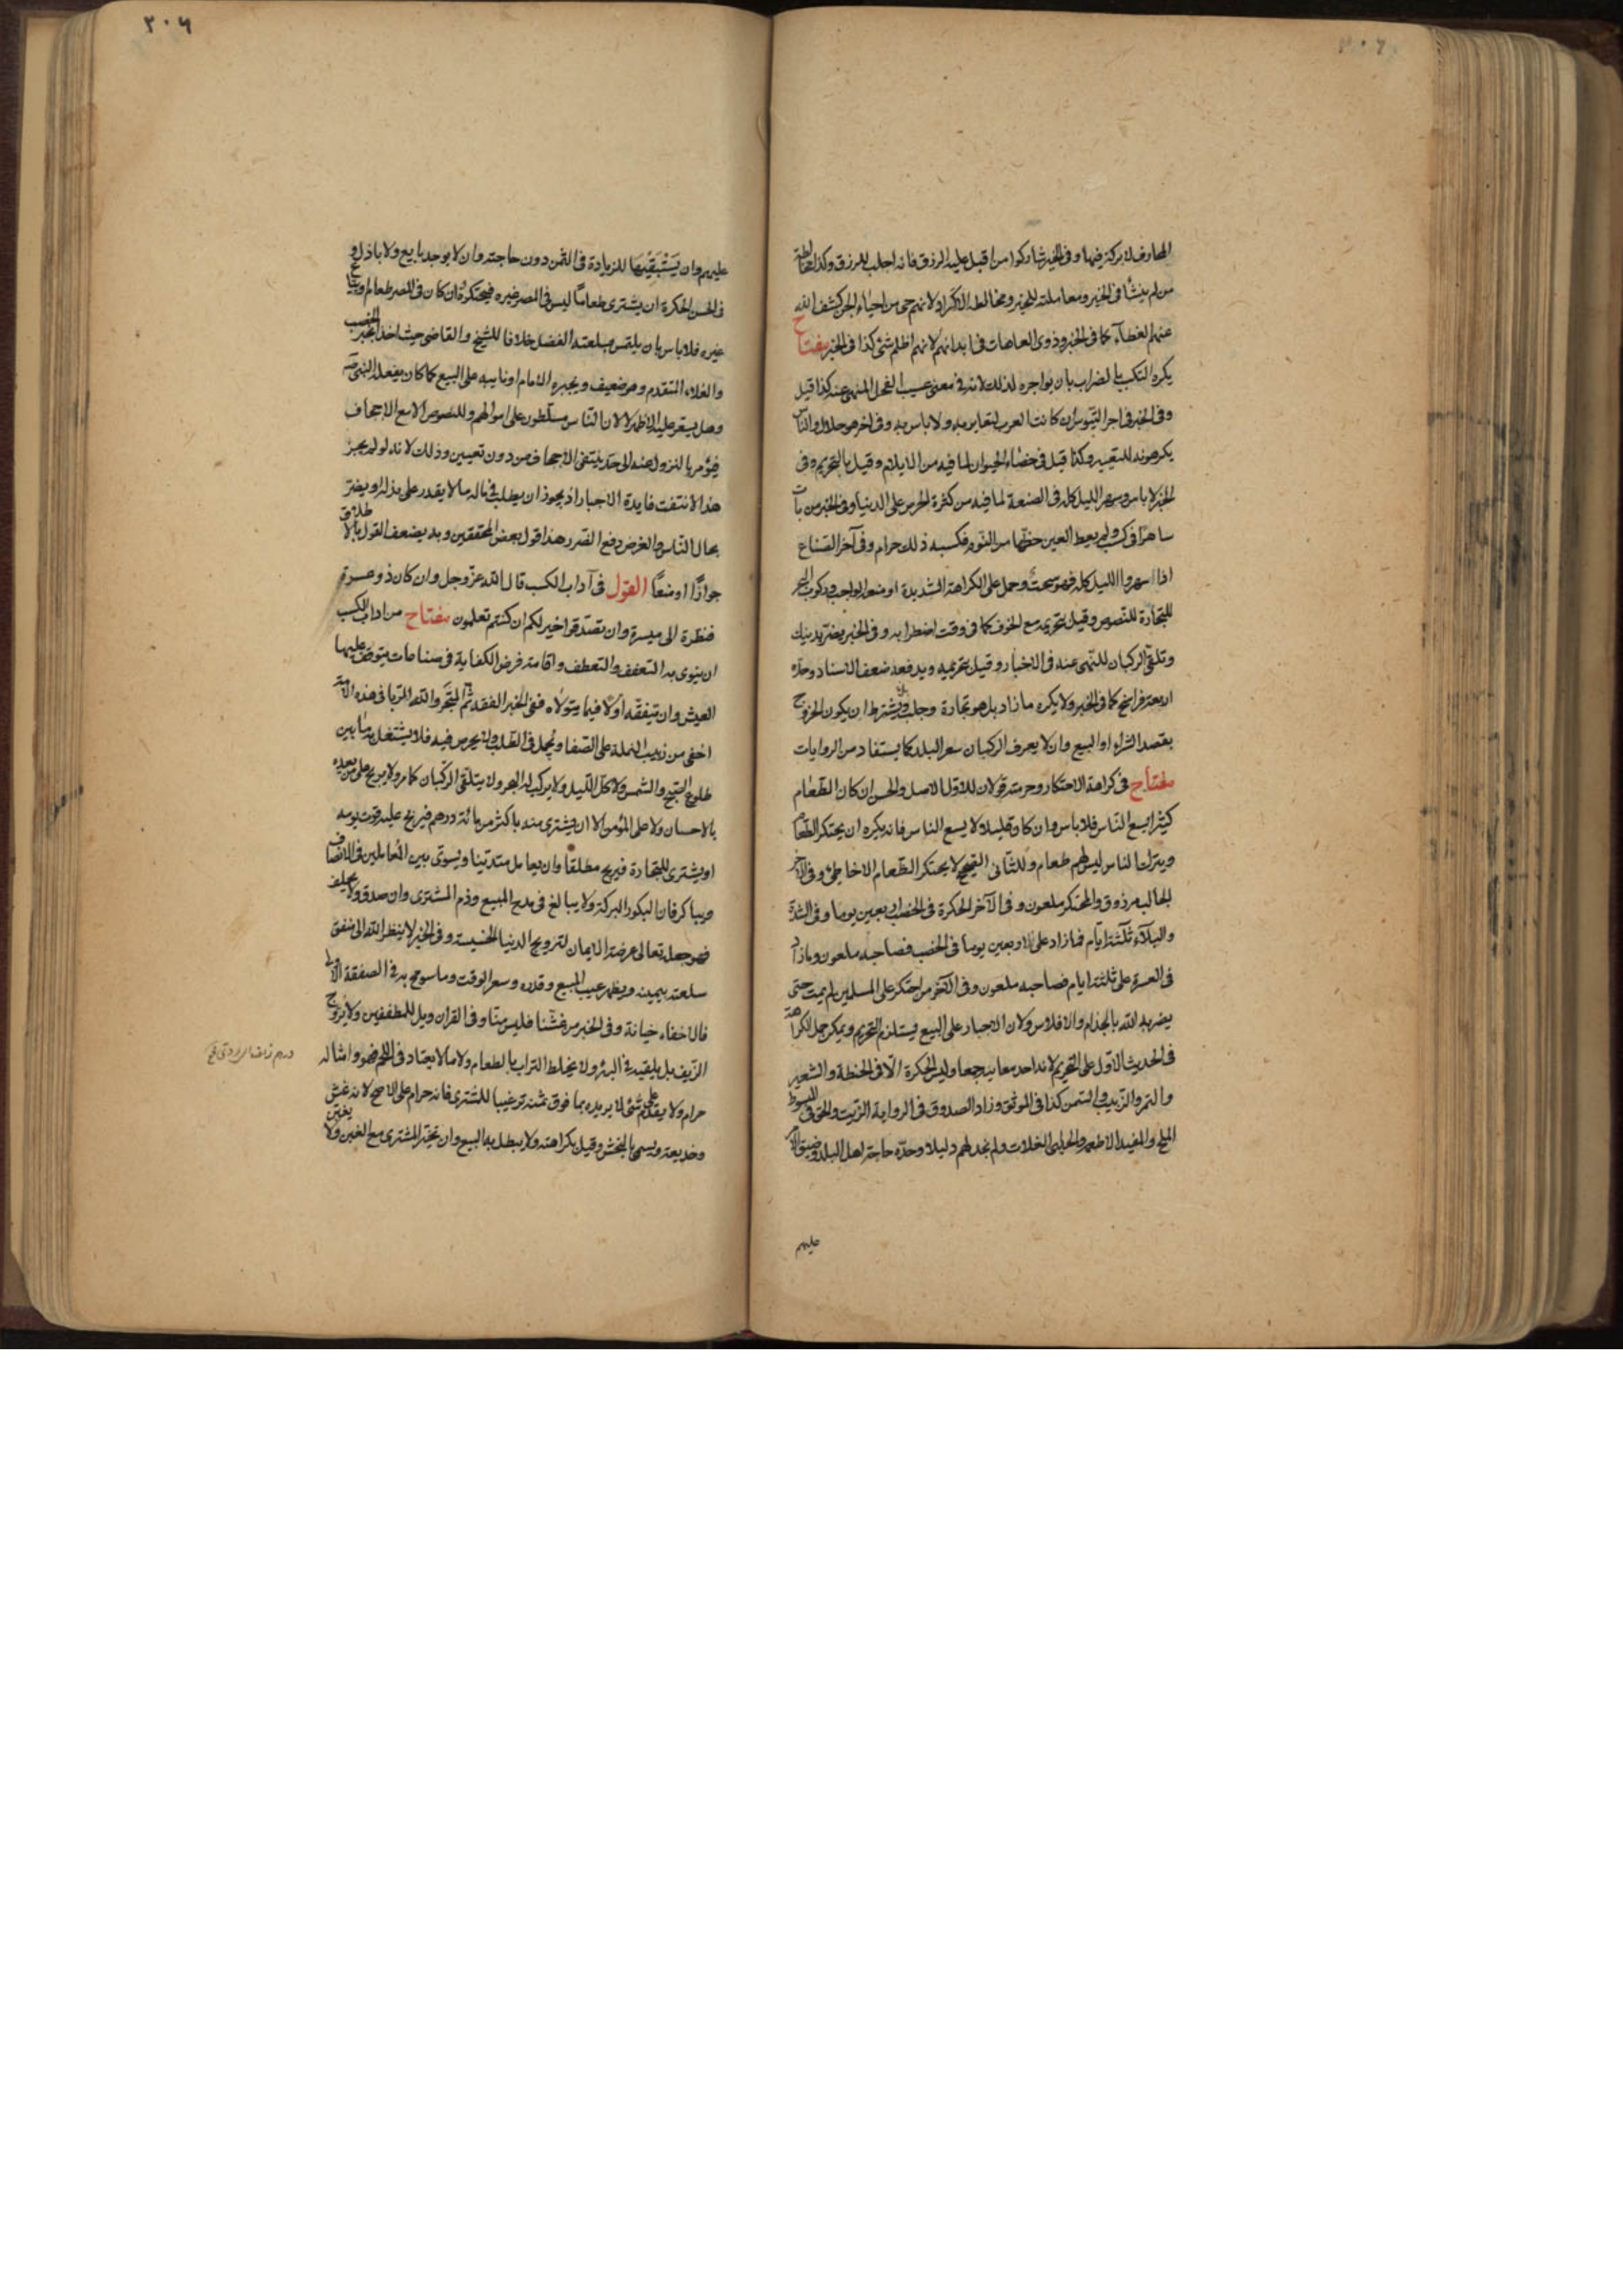 المحارف لا بركة فيها وفى الخبر شاركوا من اقبل عليه الرزق فانه اجلب للرزق وكذا مخالطة
من لم ينشأ فى الخير ومعاملته للخبر ومخالطة الاكراد لانهم حى من احياء الجن كشف الله
عنهم الغطاء كما فى الخبر وذوى العاهات فى ابدانهم لانهم اظلم شئ كذا فى الخبر مفتاح
يكره التكسب بالضراب بان يواجره لذلك لانه فى معنى عسيب الفحل المنهى عنه كذا قيل
وفى الخبر فى اجر التيوس ان كانت العرب لتعاير به ولا باس به وفى اخر هو حلال والناس
يكرهونه للتعيير وكذا قيل فى خصاء الحيوان لما فيه من الايلام وقيل بالتحريم وفى
الخبر لا باس وسهر الليل كله فى الصنعة لما فيه من كثرة الحرص على الدنيا وفى الخبر من بات
ساهرا فى كسب ولم يعط العين حظها من النوم فكسبه ذلك حرام وفى آخر الصناع
اذا سهروا الليل كله فهو سحت وحمل على الكراهة الشديدة او منع الواجب وركوب البحر
للتجارة للنصوص وقيل بتحريمه مع الخوف كما فى وقت اضطرابه وفى الخبر يضر بدينك
وتلقى الركبان للنهى عنه فى الاخبار وقيل بتحريمه ويدفعه ضعف الاسناد وحده
اربعة فراسخ كما فى الخبر ولا يكره ما زاد بل هو تجارة وجلب ويشترط ان يكون الخروج
بقصد الشراء او البيع وان لا يعرف الركبان سعر البلد كما يستفاد من الروايات
مفتاح فى كراهة الاحتكار وحرمته قولان للاول الاصل والحسن ان كان الطعام
كثيرا يسع الناس فلا باس وان كان قليلا لا يسع الناس فانه يكره ان يحتكر الطعام
ويترك الناس ليس لهم طعام وللثانى الصحيح لا يحتكر الطعام الا خاطئ وفى الآخر
الجالب مرزوق والمحتكر ملعون وفى الآخر الحكرة فى الخصب اربعين يوما وفى الشدة
والبلاء ثلثة ايام فما زاد على الاربعين يوما فى الخصب فصاحبه ملعون وما زاد
فى العسرة على ثلثة ايام فصاحبه ملعون وفى الآخر من احتكر على المسلمين لم يمت حتى
يضربه الله بالجذام والافلاس ولان الاجبار على البيع يستلزم التحريم ويمكن حمل الكراهة
فى الحديث الاول على التحريم لانه احد معانيه جمعا وليس الحكرة الا فى الحنطة والشعير
والتمر والزبيب والسمن كذا فى الموثق وزاد الصدوق فى الرواية الزيت والحق فى المبسوط
الملح والمفيد الاطعمة والحلبى الغلات ولم نجد لهم دليلا وحده حاجة اهل البلد وضيق الامر
عليهم
٢٠٦
عليهم وان يستبقيها للزيادة فى الثمن دون حاجته وان لا يوجد بايع ولا باذل و
فى الحسن الحكرة ان يشترى طعاما ليس فى المصر غيره فيحتكره فان كان فى المصر طعام ويباع
غيره فلا باس بان يلتمس بسلعته الفضل خلافا للشيخ والقاضى حيث اخذا بخبر الخصب
والغلاء المتقدم وهو ضعيف ويجبره الامام او نايبه على البيع كما كان يفعله النبى ص
وهل يسعر عليه الاظهر لا لان الناس مسلطون على اموالهم وللنصوص الا مع الاجحاف
فيؤمر بالنزول عنه الى حد ينتفى الاجحاف من دون تعيين وذلك لانه لو لم يجز
هذا لانتفت فايدة الاجبار اذ يجوز ان يطلب فى ماله ما لا يقدر على بذله ويضر
بحال الناس والغرض دفع الضرر هذا قول بعض المحققين وبه يضعف القول بالاطلاق
جوازا او منعا القول فى آداب الكسب قال الله عز وجل وان كان ذو عسرة
فنظرة الى ميسرة وان تصدقوا خير لكم ان كنتم تعلمون مفتاح من اداب الكسب
ان ينوى به التعفف والتعطف واقامته فرض الكفاية فى صناعات يتوقف عليها
العيش وان يتفقه اولا فيما يتولاه ففى الخبر الفقه ثم المتجر والله للربا فى هذه الامة
اخفى من دبيب النملة على الصفا ويجمل فى الطلب ولا يحرص فيه فلا يشتغل به ما بين
طلوع الصبح والشمس ولا كل الليل ولا يركب له البحر ولا يتلقى الركبان كما مر ولا يربح على من يعده
بالاحسان ولا على المؤمن الا ان يشترى منه باكثر من مائة درهم فيربح عليه قوت يومه
او يشترى للتجارة فيربح مطلقا وان يعامل متدينا ويسوى بين المعاملين فى الانصاف
ويباكر فان البكور البركة ولا يبالغ فى مدح المبيع وذم المشترى وان صدق ولا يحلف
فهو جعله تعالى عرضة الايمان لترويج الدنيا الخسيسة وفى الخبر لا ينظر الله الى منفق
سلعته بيمينه ويظهر عيب المبيع وقدره وسعر الوقت وما سومح به فى الصفقة الاولى
فالاخفاء خيانة وفى الخبر من غشنا فليس منا وفى القران ويل للمطففين ولا يروج
الزيف بل يلقيه فى البئر ولا يخلط التراب بالطعام ولا ما لا يعتاد فى اللحم فهو وامثاله
حرام ولا يقدم على شئ لا يريده بما فوق ثمنه ترغيبا للمشترى فانه حرام على الاصح لانه غش
وخديعة ويسمى بالنجش وقيل بكراهته ولا يبطل به البيع وان تخير المشترى مع الغبن ولا يغبن